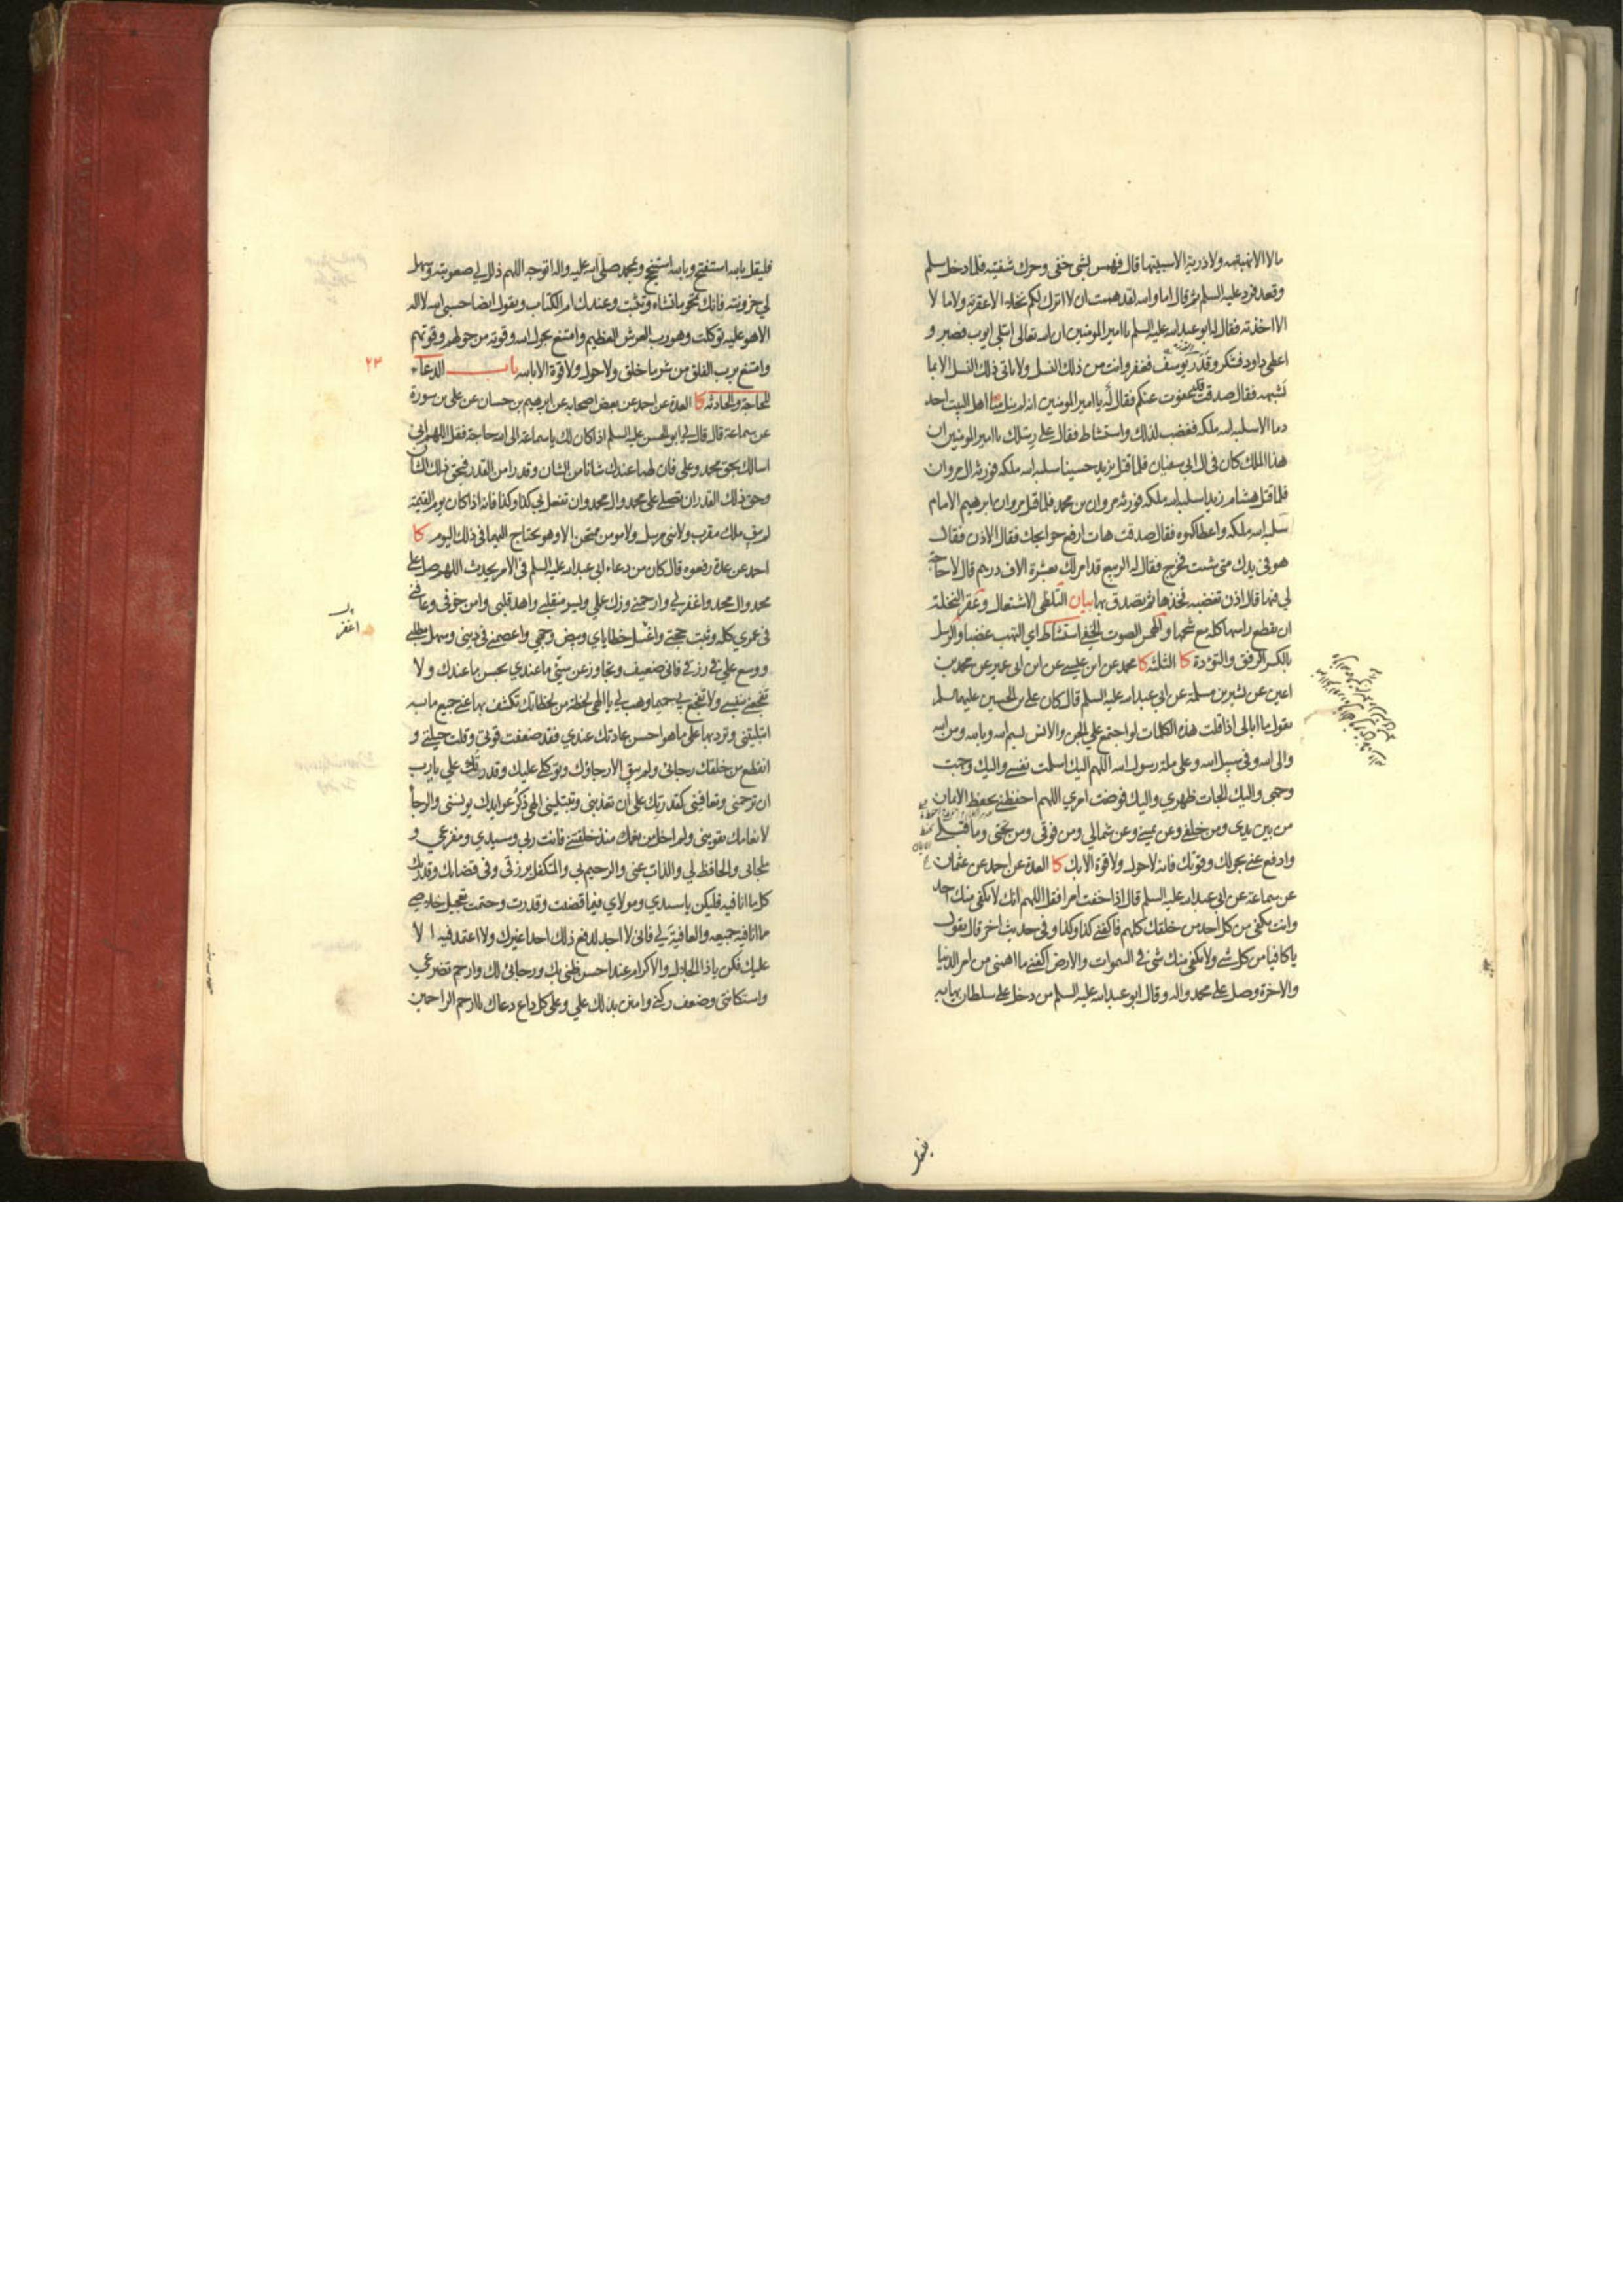 مالا الا نهبته ولا ذرية الا سبيتها قال فهمس بشئ خفى وحرك شفتيه فلما دخل سلم
وقعد فرد عليه السلم ثم قال اما والله لقد هممت ان لا اترك لكم نخلة الا عقرته ولا مالا
الا اخذته فقال له ابو عبد الله عليه السلم يا امير المومنين ان الله تعالى ابتلى ايوب فصبر و
اعطى داود فشكر وقدر يوسف فغفر وانت من ذلك النسل ولا ياتى ذلك النسل الا بما
يشبهه فقال صدقت قد عفوت عنكم فقال له يا امير المومنين انه لم ينل منا اهل البيت احد
دما الا سلبه الله ملكه فغضب لذلك واستشاط فقال على رسلك يا امير المومنين ان
هذا الملك كان فى ال ابى سفيان فلما قتل يزيد حسينا سلبه الله ملكه فورثه ال مروان
فلما قتل هشام زيدا سلبه الله ملكه فورثه مروان بن محمد فلما قتل مروان ابرهيم الامام
سلبه الله ملكه واعطاكموه فقال صدقت هات ارفع حوايجك فقال الاذن فقال
هو فى يدك متى شئت فخرج فقال له الربيع قد امر لك بعشرة الاف درهم قال لا حاجة
لي فيها قال اذن تغضبه فخذها ثم تصدق بها بيان التلظى الاشتعال وعقر النخلة
ان يقطع راسها كله مع شحمها والهمس الصوت الخفي استشاط اي التهب غضبا والرسل
بالكسر الرفق والتؤدة كا الثلثه كا محمد عن ابن عيسى عن ابن ابى عمير عن محمد بن
اعين عن بشير بن مسلمة عن ابي عبد الله عليه السلم قال كان على بن الحسين عليهما السلم
يقول ما ابالى اذا قلت هذه الكلمات لو اجتمع علي الجن والانس بسم الله وبالله ومن الله
والى الله وفى سبيل الله وعلى ملة رسول الله اللهم اليك اسلمت نفسي واليك وجهت
وجهى واليك الجات ظهري واليك فوضت امري اللهم احفظني بحفظ الايمان
من بين يدى ومن خلفي وعن يميني وعن شمالي ومن فوقى ومن تحتى وما قبلي
وادفع عني بحولك وقوتك فانه لا حول ولا قوة الا بك كا العدة عن احمد عن عثمان
عن سماعة عن ابى عبد الله عليه السلم قال اذا خفت امرا فقل اللهم انك لا يكفى منك احد
وانت تكفى من كل احد من خلقك كلهم فاكفني كذا وكذا وفى حديث اخر قال يقول
يا كافيا من كل شئ ولا يكفى منك شئ فى السموات والارض اكفني ما اهمنى من امر الدنيا
والاخرة وصل على محمد واله وقال ابو عبد الله عليه السلم من دخل على سلطان يهابه
فليقل
فليقل بالله استفتح وبالله استنجح وبمحمد صلى الله عليه واله اتوجه اللهم ذلل لى صعوبته وسهل
لي حزونته فانك تمحو ما تشاء وتثبت وعندك ام الكتاب ويقول ايضا حسبى الله لا اله
الا هو عليه توكلت وهو رب العرش العظيم وامتنع بحول الله وقوته من حولهم وقوتهم
وامتنع برب الفلق من شر ما خلق ولا حول ولا قوة الا بالله باب الدعاء
٢٣
للحاجة والحادثه كا العدة عن احمد عن بعض اصحابه عن ابرهيم بن حسان عن على بن سورة
عن سماعة قال قال لي ابو الحسن عليه السلم اذا كان لك يا سماعة الى الله حاجة فقل اللهم انى
اسالك بحق محمد وعلى فان لهما عندك شانا من الشان وقدرا من القدر فبحق ذلك الشان
وحق ذلك القدر ان تصلي على محمد وال محمد وان تفعل بى كذا وكذا فانه اذا كان يوم القيمة
لم يبق ملك مقرب ولا نبى مرسل ولا مومن ممتحن الا وهو يحتاج اليهما فى ذلك اليوم كا
احمد عن عدة رفعوه قال كان من دعاء ابى عبد الله عليه السلم فى الامر يحدث اللهم صل على
محمد وال محمد واغفر لي وارحمني وزك عملي ويسر منقلبي واهد قلبى وامن خوفى وعافني
فى عمري كله وثبت حجتي واغسل خطاياي وبيض وجهي واعصمني فى دينى وسهل مطلبي
اغفر
ووسع علي فى رزقي فانى ضعيف وتجاوز عن سيئ ما عندي بحسن ما عندك ولا
تفجعني بنفسي ولا تفجع لي حميما وهب لي يا الهى لحظة من لحظاتك تكشف بها عني جميع ما به
ابتليتنى وترد بها على ما هو احسن عاداتك عندي فقد ضعفت قوتى وقلت حيلتي و
انقطع من خلقك رجائى ولم يبق الا رجاؤك وتوكلي عليك وقدرتك علي يا رب
ان ترحمنى وتعافينى كقدرتك على ان تعذبنى وتبتلينى الهى ذكر عوايدك يونسنى والرجا
لانعامك يقوينى ولم اخل من نعمك منذ خلقتني فانت ربى وسيدي ومفزعي و
ملجائى والحافظ لي والذاب عنى والرحيم بي والمتكفل برزقى وفى قضائك وقدرتك
كل ما انا فيه فليكن يا سيدي ومولاي فيما قضيت وقدرت وحتمت تعجيل خلاصي
مما انا فيه جميعه والعافية لي فانى لا اجد لدفع ذلك احدا غيرك ولا اعتمد فيه الا
عليك فكن يا ذا الجلال والاكرام عند احسن ظنى بك ورجائى لك وارحم تضرعي
واستكانتى وضعف ركني وامنن بذلك علي وعلى كل داع دعاك يا ارحم الراحمين